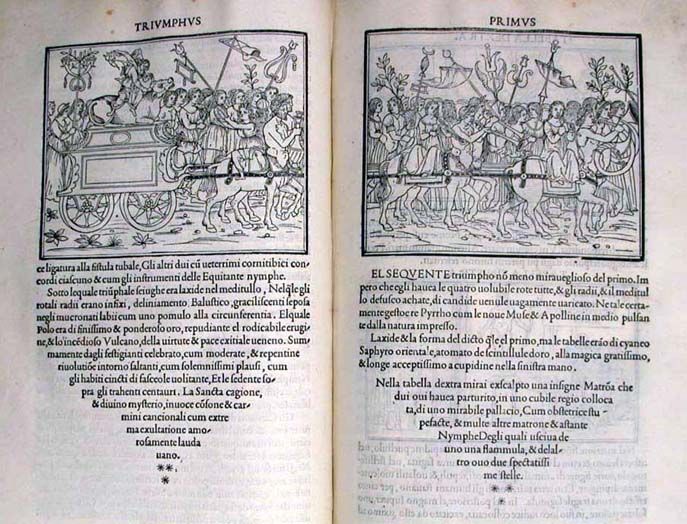 TRIVMPHVS
ce ligatura alla fistula tubale, Gli altri dui cũ ueterrimi cornitibici con
cordi ciascuno & cum gli instrumenti delle Equitante nymphe.
Sotto lequale triũphale seiughe era laxide nel meditullo, Nelq̃le gli
rotali radii erano infixi, deliniamento Balustico, graciliscenti seposa
negli mucronati labii cum uno pomulo alla circunferentia. Elquale
Polo era di finissimo & ponderoso oro, repudiante el rodicabile erugi
ne, & lo incẽdioso Vulcano, della uirtute & pace exitiale ueneno. Sum
mamente dagli festigianti celebrato, cum moderate, & repentine
riuolutiõe intorno saltanti, cum solemnissimi plausi, cum
gli habiti cincti di fasceole uolitante, Et le sedente so
pra gli trahenti centauri. La Sancta cagione,
& diuino mysterio, inuoce cõsone & car
mini cancionali cum extre
ma exultatione amo
rosamente lauda
uano.
PRIMVS
EL SEQVENTE triumpho nõ meno miraueglioso del primo. Im
pero che egli hauea le quatro uolubile rote tutte, & gli radii, & il meditul
lo defusco achate, di candide uenule uagamente uaricato. Ne tale certa-
mente gestoe re Pyrrho cum le noue Muse & Apolline in medio pulsan
te dalla natura impresso.
Laxide & la forma del dicto q̃le el primo, ma le tabelle erão di cyaneo
Saphyro orientale, atomato de scintillule doro, alla magica gratissimo,
& longe acceptissimo a cupidine nella sinistra mano.
Nella tabella dextra mirai exscalpto una insigne Matrõa che
dui oui hauea parturito, in uno cubile regio colloca
ta, di uno mirabile pallacio, Cum obstetrice stu
pefacte, & multe altre matrone & astante
Nymphe Degli quali usciua de
uno una flammula, & delal-
tro ouo due spectatissi
me stelle.